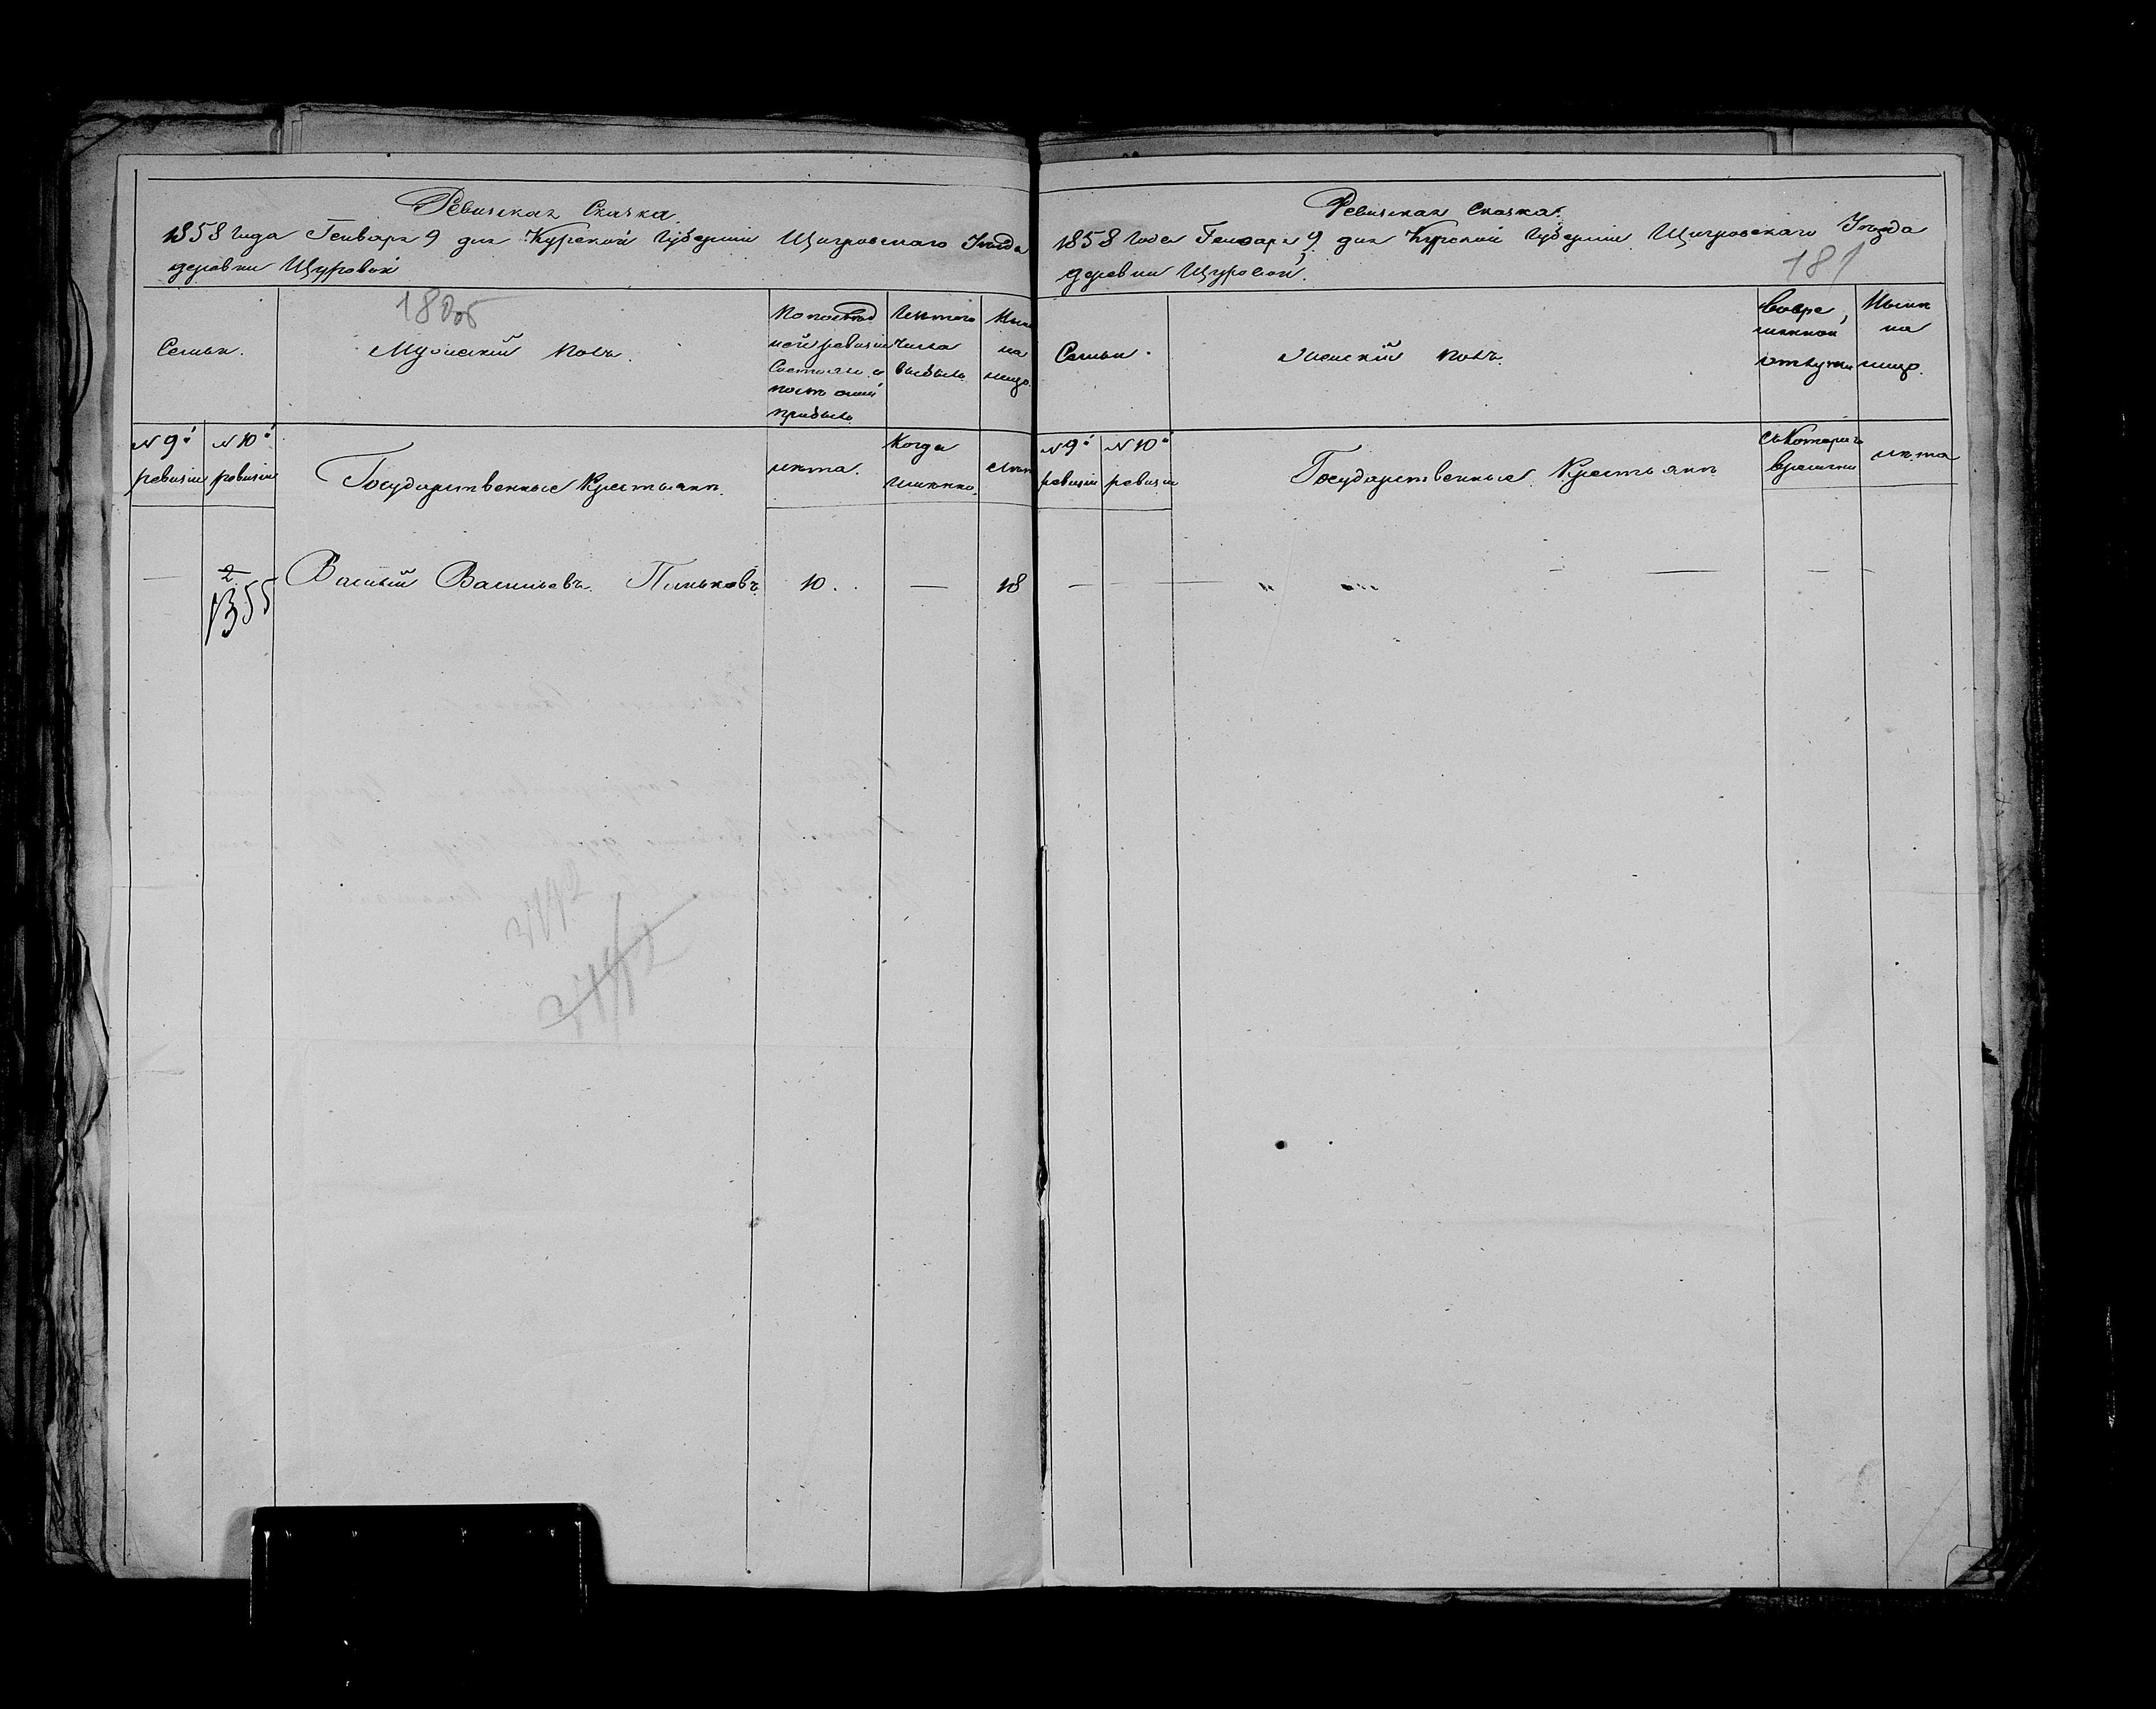 Ревизская Сказка
1858 года Генваря 9 дня Курской Губернии Щигровскаго Уезда
деревни Щуровой
180об
Семьи.
Мужеский полъ.
По послед
ней ревизии
Состояло и
после оной
прибыло
Изъ того
числа
выбыло
Ныне
на
лицо
№ 9й
ревизии
№ 10й
ревизии
Государственные Крестьяне.
лета.
Когда
именно.
лета
—
2
1355
Василий Васильевъ Пиньковъ
10.
—
18
Ревизская Сказка.
1858 года Генваря 9 дня Курской Губернии Щигровскаго Уезда
деревни Щуровой.
181
Семьи.
Женский полъ.
Вовре
менной
отлучки
Ныне
на
лицо.
№ 9й
ревизии
№ 10й
ревизии
Государственные Крестьяне
съ Котораго
времени
лета
— — — —